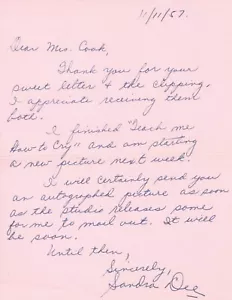 11/11/57.
Dear Mrs. Cook,
Thank you for your
sweet letter & the clipping.
I appreciate receiving them
both.
I finished "Teach me
How to Cry" and am starting
a new picture next week.
I will certainly send you
an autographed picture as soon
as the studio releases some
for me to mail out. It will
be soon.
Until then,
Sincerely,
Sandra Dee